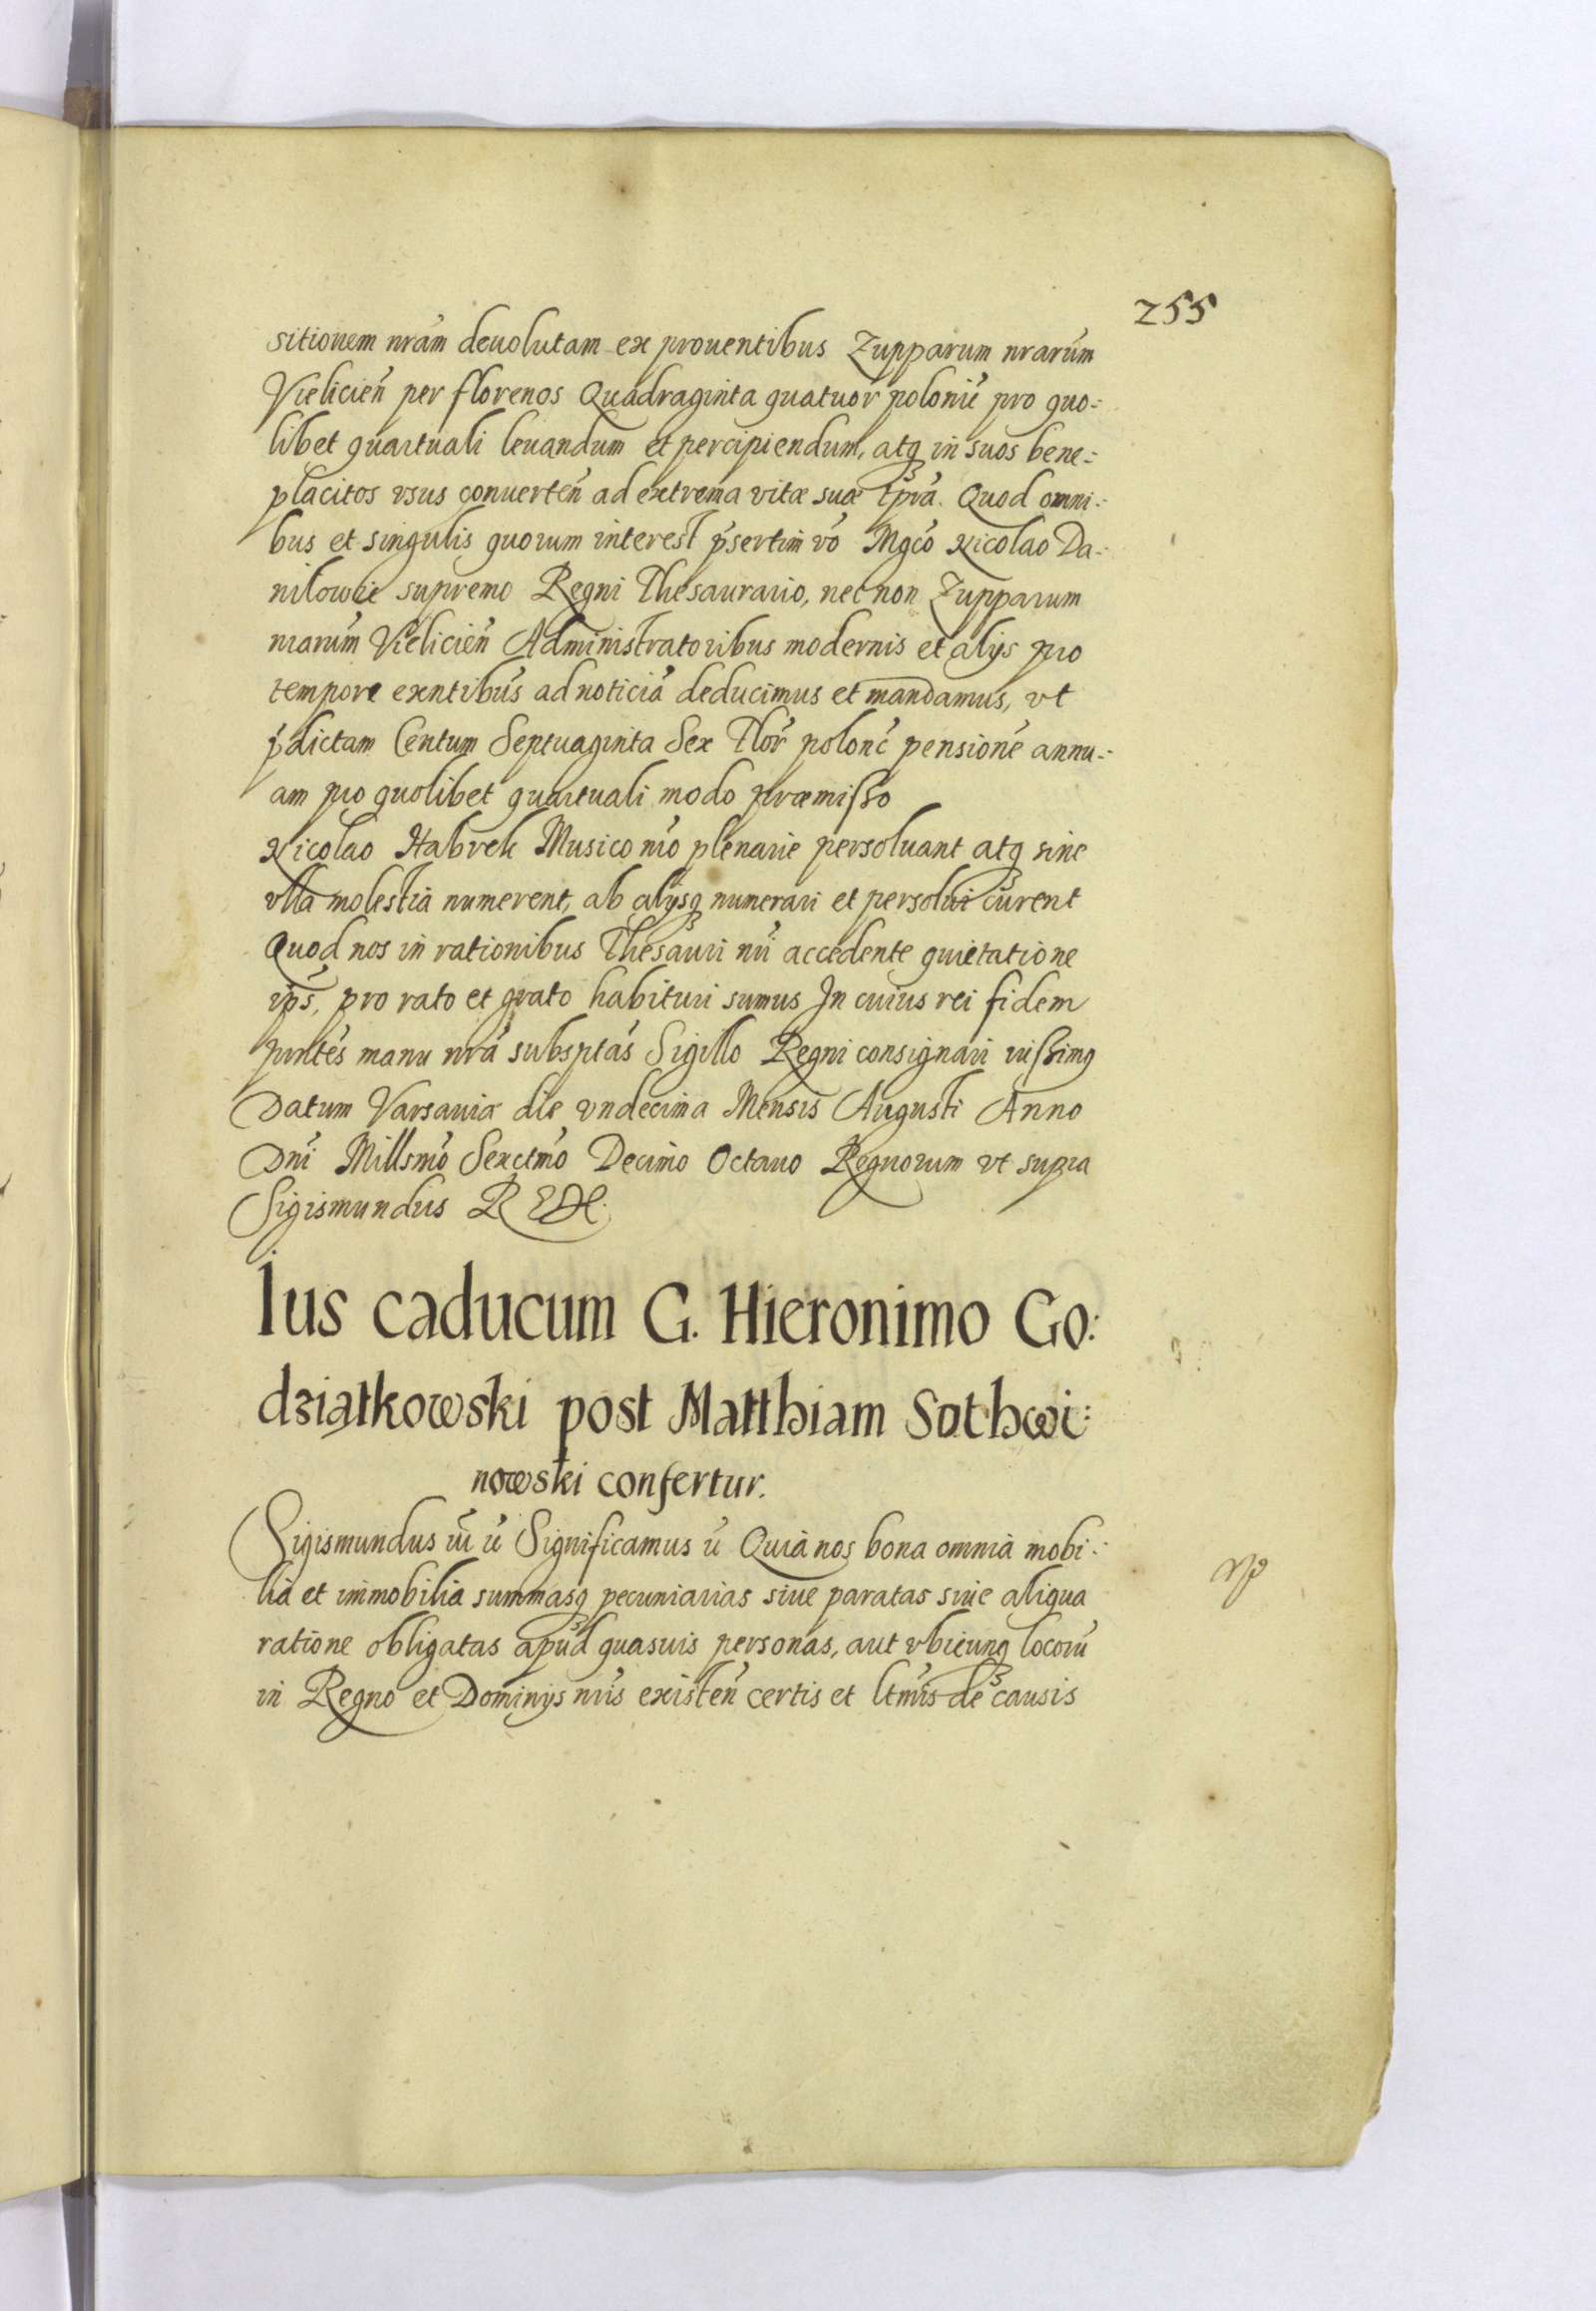 255
sitionem nrãm deuolutam ex prouentibus Zupparum nrarum̃
Vieliciẽn per florenos Quadraginta quatuor poloniẽ pro quo=
libet quartuali leuandum et percipiendum, atq₃ in suos bene=
placitos vsus conuertẽn ad extrema vitæ suæ tp̃ra. Quod omni=
bus et singulis quorum interest p̃sertim võ Mgcõ Nicolao Da=
nilowic supremo Regni Thesaurario, nec non Zupparum
nrarum̃ Vieliciẽn Administratoribus modernis et alijs pro
tempore exntibũs ad noticiã deducimus et mandamus, vt
p̃dictam Centum Septuaginta Sex Flor̃ polonc̃ pensionẽ annu=
am pro quolibet quartuali modo præmisso
Nicolao Habrek Musico nrõ plenarie persoluant atq₃ sine
vlla molestia numerent, ab alijsq₃ numerari et persolui curent
Quod nos in rationibus Thesauri nrĩ accedente quietatione
ip̃s, pro rato et grato habituri sumus In cuius rei fidem
pñtes manu nrã subsptãs Sigillo Regni consignari iussimq
Datum Varsauiæ die vndecima Mensis Augusti Anno
Dnĩ Millsmõ Sexctmõ Decimo Octauo Regnorum vt supra
Sigismundus REX.
Ius caducum G. Hieronimo Go:
dziątkowski post Matthiam Sothwi:
nowski confertur.
Sigismundus iii ẽ Significamus ẽ Quia nos bona omnia mobi=
lia et immobilia summasq₃ pecuniarias siue paratas siue aliqua
ratione obligatas apud quasuis personas, aut vbicunq₃ locorũ
in Regno et Dominijs nrĩs existẽn certis et ltmĩs de causis